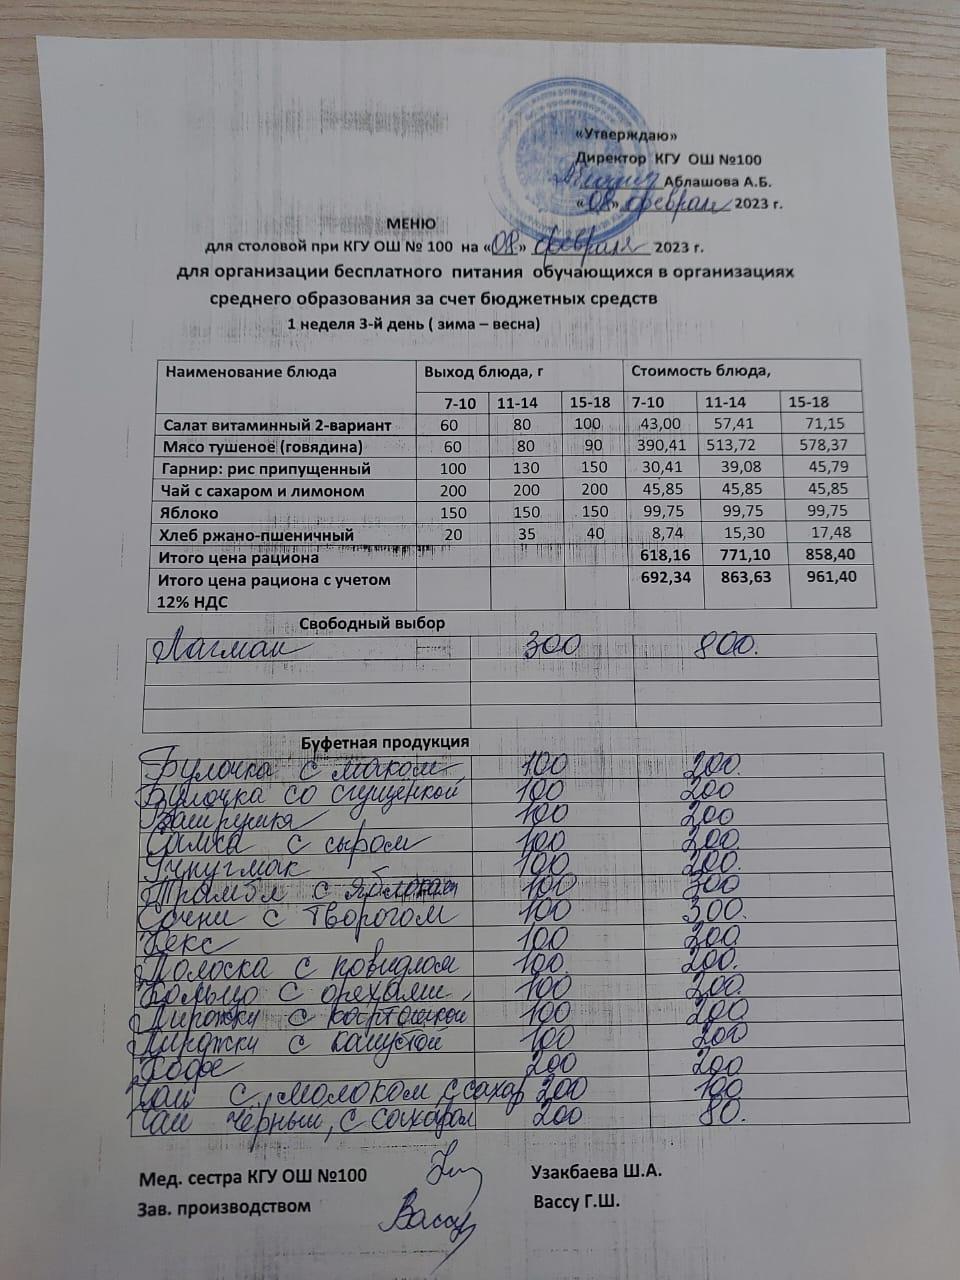 «Утверждаю»
Директор КГУ ОШ №100
Аблашова А.Б.
«08» февраля 2023 г.
МЕНЮ
для столовой при КГУ ОШ № 100 на «08» февраля 2023 г.
для организации бесплатного питания обучающихся в организациях
среднего образования за счет бюджетных средств
1 неделя 3-й день ( зима – весна)
Наименование блюда Выход блюда, г Стоимость блюда,
7-10 11-14 15-18 7-10 11-14 15-18
Салат витаминный 2-вариант 60 80 100 43,00 57,41 71,15
Мясо тушеное (говядина) 60 80 90 390,41 513,72 578,37
Гарнир: рис припущенный 100 130 150 30,41 39,08 45,79
Чай с сахаром и лимоном 200 200 200 45,85 45,85 45,85
Яблоко 150 150 150 99,75 99,75 99,75
Хлеб ржано-пшеничный 20 35 40 8,74 15,30 17,48
Итого цена рациона 618,16 771,10 858,40
Итого цена рациона с учетом 692,34 863,63 961,40
12% НДС
Свободный выбор
Лагман 300 800.
Буфетная продукция
Булочка с маком 100 200.
Булочка со сгущенкой 100 200
Ватрушка 100 200
Самса с сыром 100 200.
100 200.
с яблоком 100 300
Сочни с творогом 100 300.
Кекс 100 200
Полоска с повидлом 100 200.
Кольцо с орехами 100 200.
Пирожки с картошкой 100 200
Пирожки с капустой 100 200
Кофе 200 200
Чай с молоком, с сахар 200 100
Чай черный, с сахаром 200 80.
Мед. сестра КГУ ОШ №100 Узакбаева Ш.А.
Зав. производством Вассу Вассу Г.Ш.